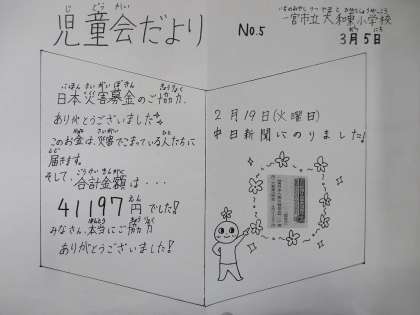 児童会だより
No.5
一宮市立大和東小学校
3月5日
日本災害募金のご協力、
ありがとうございました。
このお金は、災害でこまっている人たちに
届きます。
そして、合計金額は・・・
41197円でした!
みなさん、本当にご協力
ありがとうございました!
2月19日(火曜日)
中日新聞にのりました!